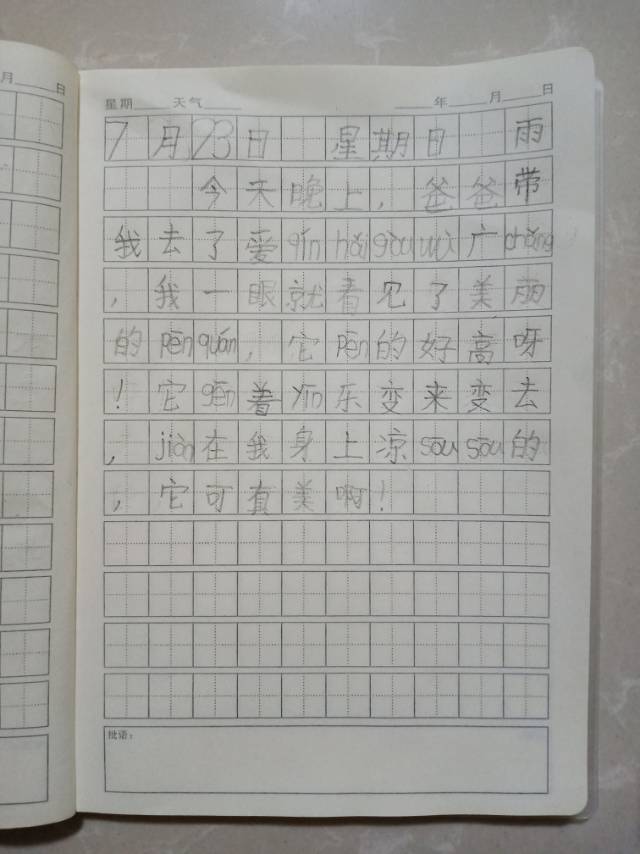 月 日
星期 天气 年 月 日
7月23日 星期日 雨
今天晚上，爸爸带
我去了爱qín hǎi gòu wù广chǎng
，我一眼就看见了美丽
的pēn quán，它pēn的好高呀
！它gēn着yīn乐变来变去
，jiàn在我身上凉sōu sōu的
，它可真美啊！
批语：